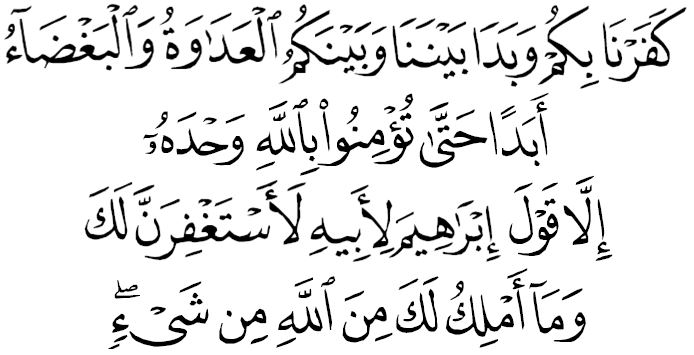 كَفَرْنَا بِكُمْ وَبَدَا بَيْنَنَا وَبَيْنَكُمُ ٱلْعَدَٰوَةُ وَٱلْبَغْضَآءُ
أَبَدًا حَتَّىٰ تُؤْمِنُوا۟ بِٱللَّهِ وَحْدَهُۥٓ
إِلَّا قَوْلَ إِبْرَٰهِيمَ لِأَبِيهِ لَأَسْتَغْفِرَنَّ لَكَ
وَمَآ أَمْلِكُ لَكَ مِنَ ٱللَّهِ مِن شَىْءٍ ۖ